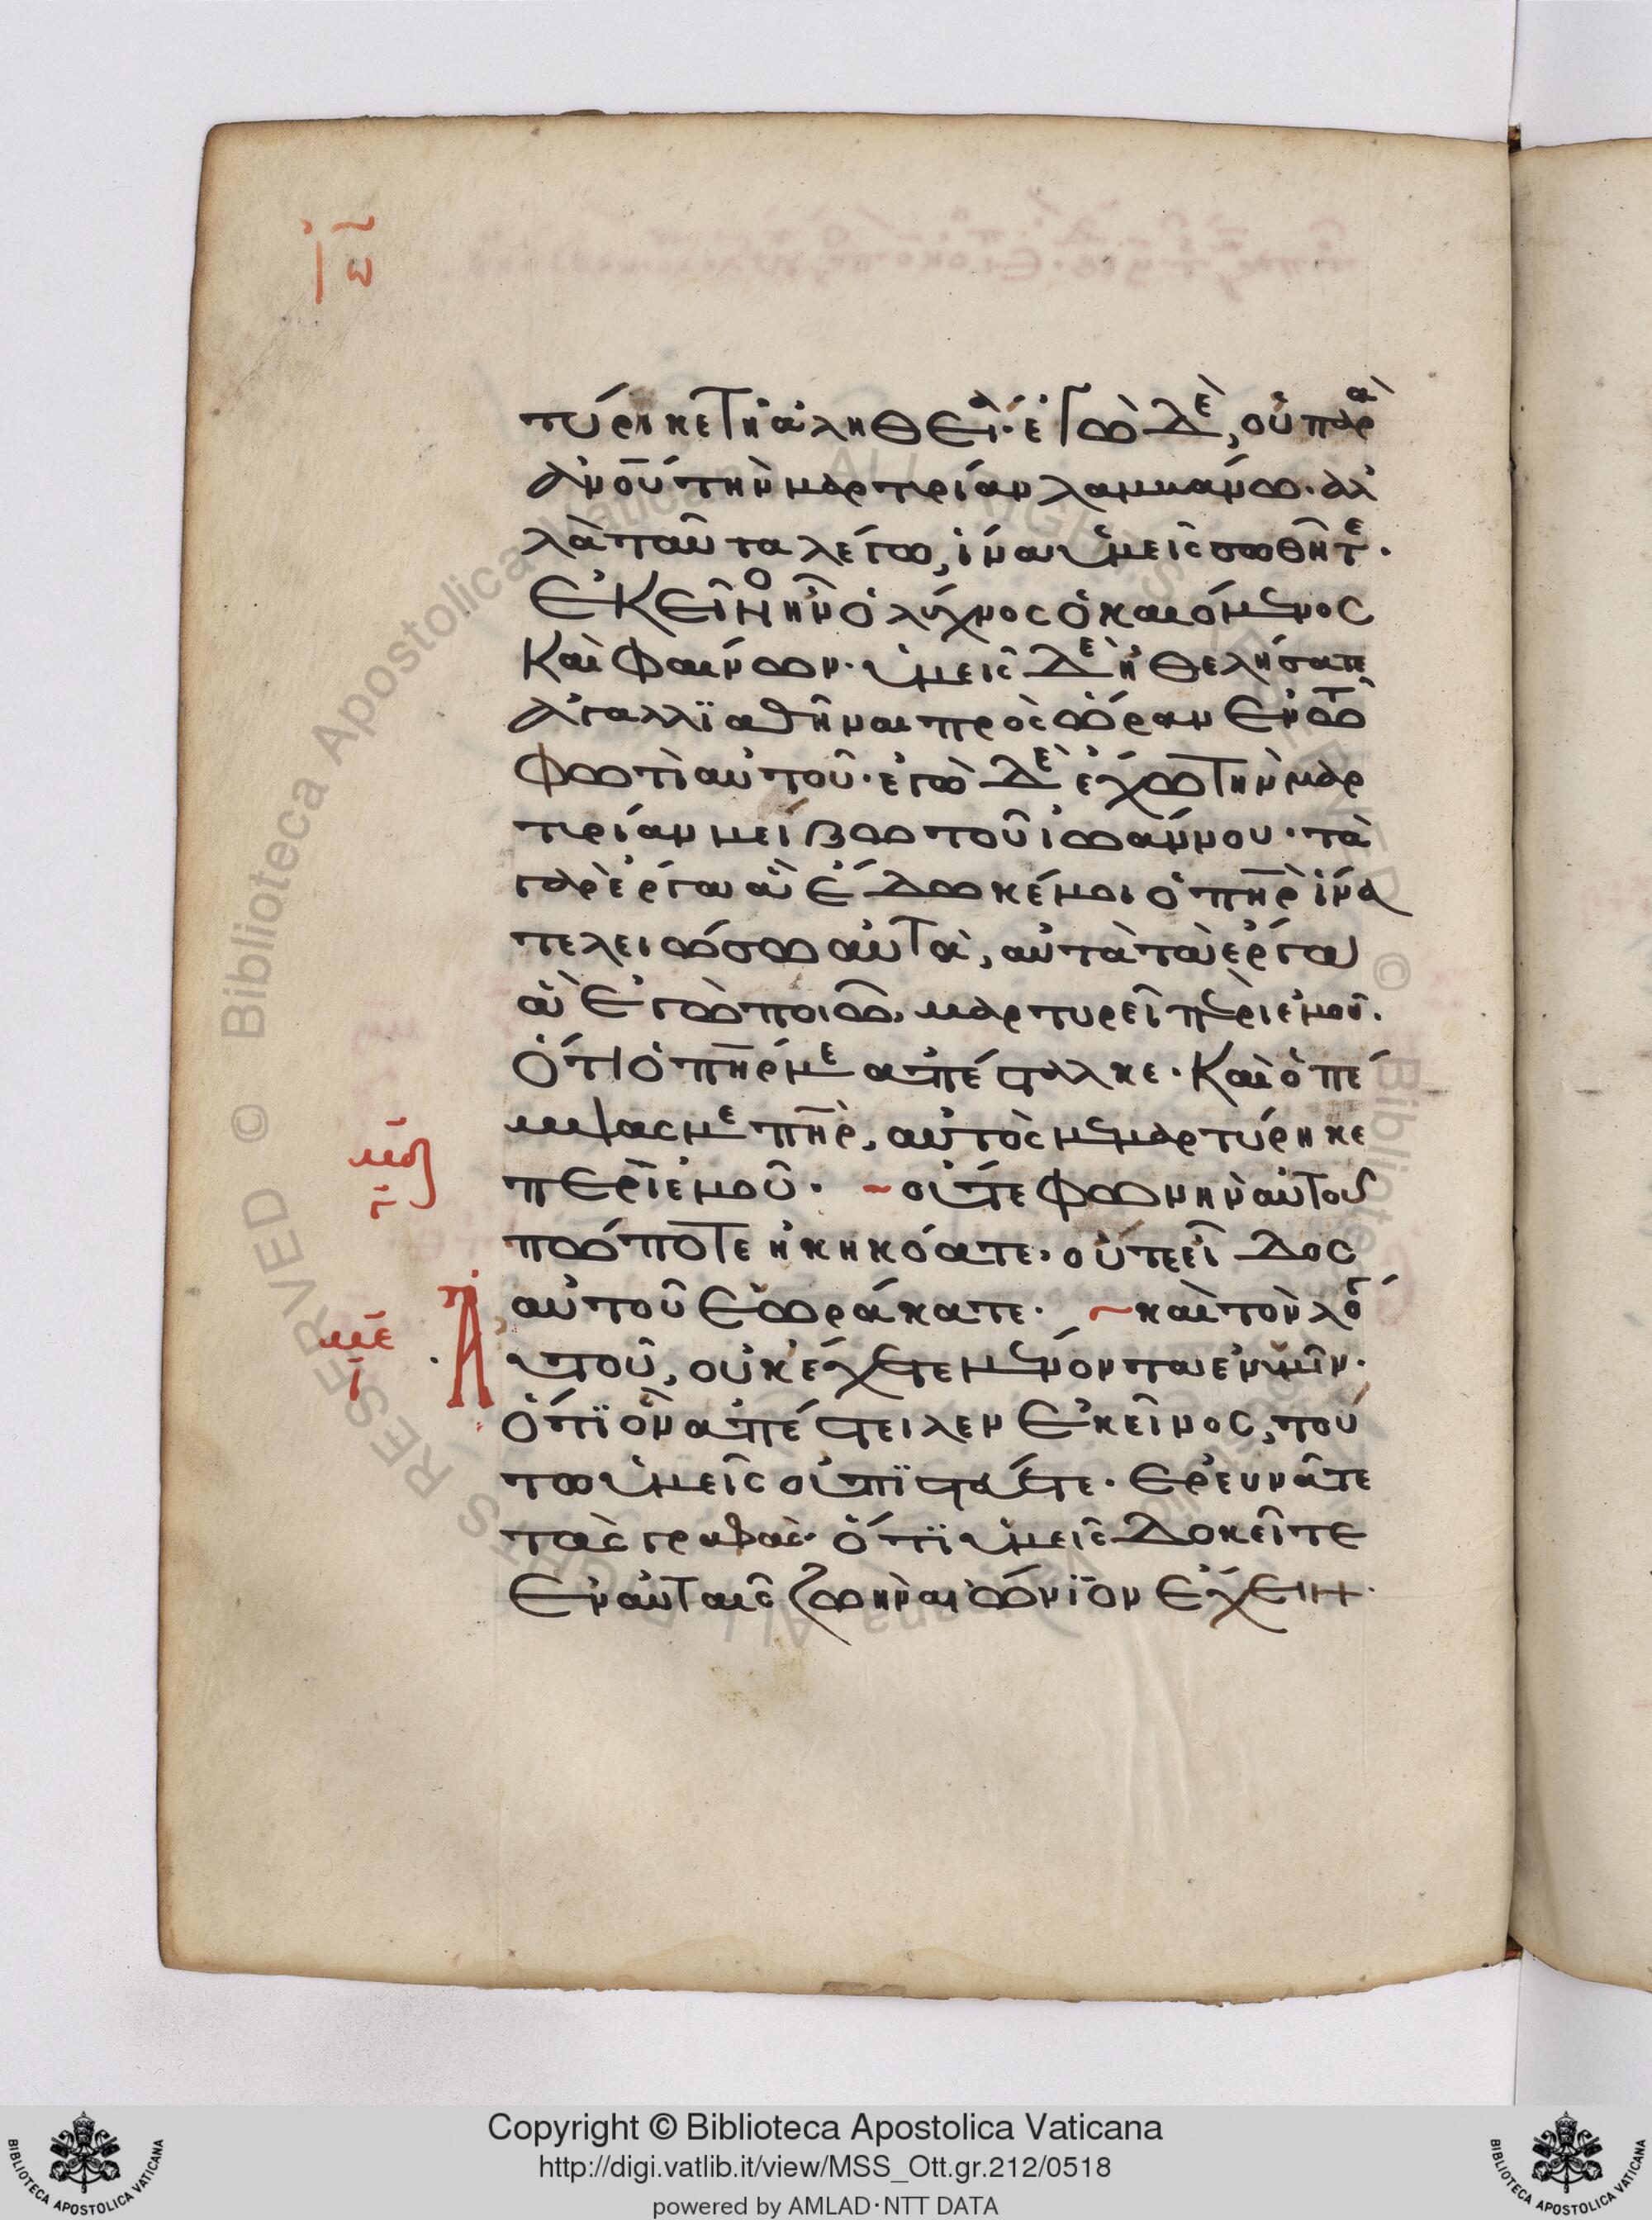 ἰω
τύρηκε τῆ ἀληθεία· ἐγὼ δὲ, οὐ παρὰ
ἀν̅ου τὴν μαρτυρίαν λαμβάνω· ἀλ
λὰ ταῦτα λέγω, ἵνα ὑμεῖς σωθῆτε·
ἐκεῖνος ἦν ὁ λύχνος ὁ καιόμενος
καὶ φαίνων· ὑμεῖς δὲ ἠθελήσατε
ἀγαλλϊαθῆναι πρὸς ὥραν ἐν τῶ
φωτὶ αὐτοῦ· ἐγὼ δὲ ἔχω τὴν μαρ
τυρίαν μείζω τοῦ ἰωάννου· τὰ
γὰρ ἔργα ἃ ἔδωκέ μοι ὁ π̅ηρ ἵνα
τελειώσω αὐτὰ, αὐτὰ τὰ ἔργα
ἃ ἐγὼ ποιῶ, μαρτυρεῖ περὶ ἐμοῦ·
ὅτι ὁ π̅ηρ με ἀπέσταλκε· καὶ ὁ πέ
μψας με π̅ηρ, αὐτὸς μεμαρτύρηκε
περὶ ἐμοῦ· ~ οὔτε φωνὴν αὐτοῦ
πώποτε ἀκηκόατε· οὔτε εἶδος
αὐτοῦ ἑωράκατε· ~ καὶ τὸν λό
Α
γ
μδ
γ
με
ι
υτοῦ, οὐκ ἔχετε μένοντα ἐν ὑμῖν·
ὅτϊ ὃν ἀπέστειλεν ἐκεῖνος, τού
τω ὑμεῖς οὐ πϊστεύετε· ἐρευνᾶτε
τὰς γραφὰς· ὅτϊ ὑμεῖς δοκεῖτε
ἐν αὐταῖς ζωὴν αἰώνϊον ἔχειν·
Copyright © Biblioteca Apostolica Vaticana
http://digi.vatlib.it/view/MSS_Ott.gr.212/0518
powered by AMLAD·NTT DATA
BIBLIOTECA APOSTOLICA VATICANA
BIBLIOTECA APOSTOLICA VATICANA